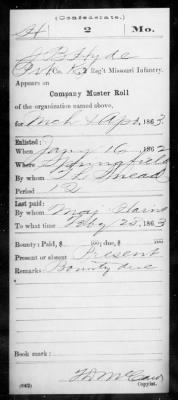 (Confederate.)
H 2 Mo.
J B Hyde
Pvt, Co. K, 2 Reg't Missouri Infantry.
Appears on
Company Muster Roll
of the organization named above,
for Mch & Apr, 1863
Enlisted:
When Jany 16, 1862
Where Springfield
By whom T L Snead
Period 12
Last paid:
By whom Maj. Haine
To what time Feby 28, 1863
Bounty: Paid, $ 100; due, $ 100
Present or absent Present
Remarks: Bounty due
Book mark:
(642) Copyist.